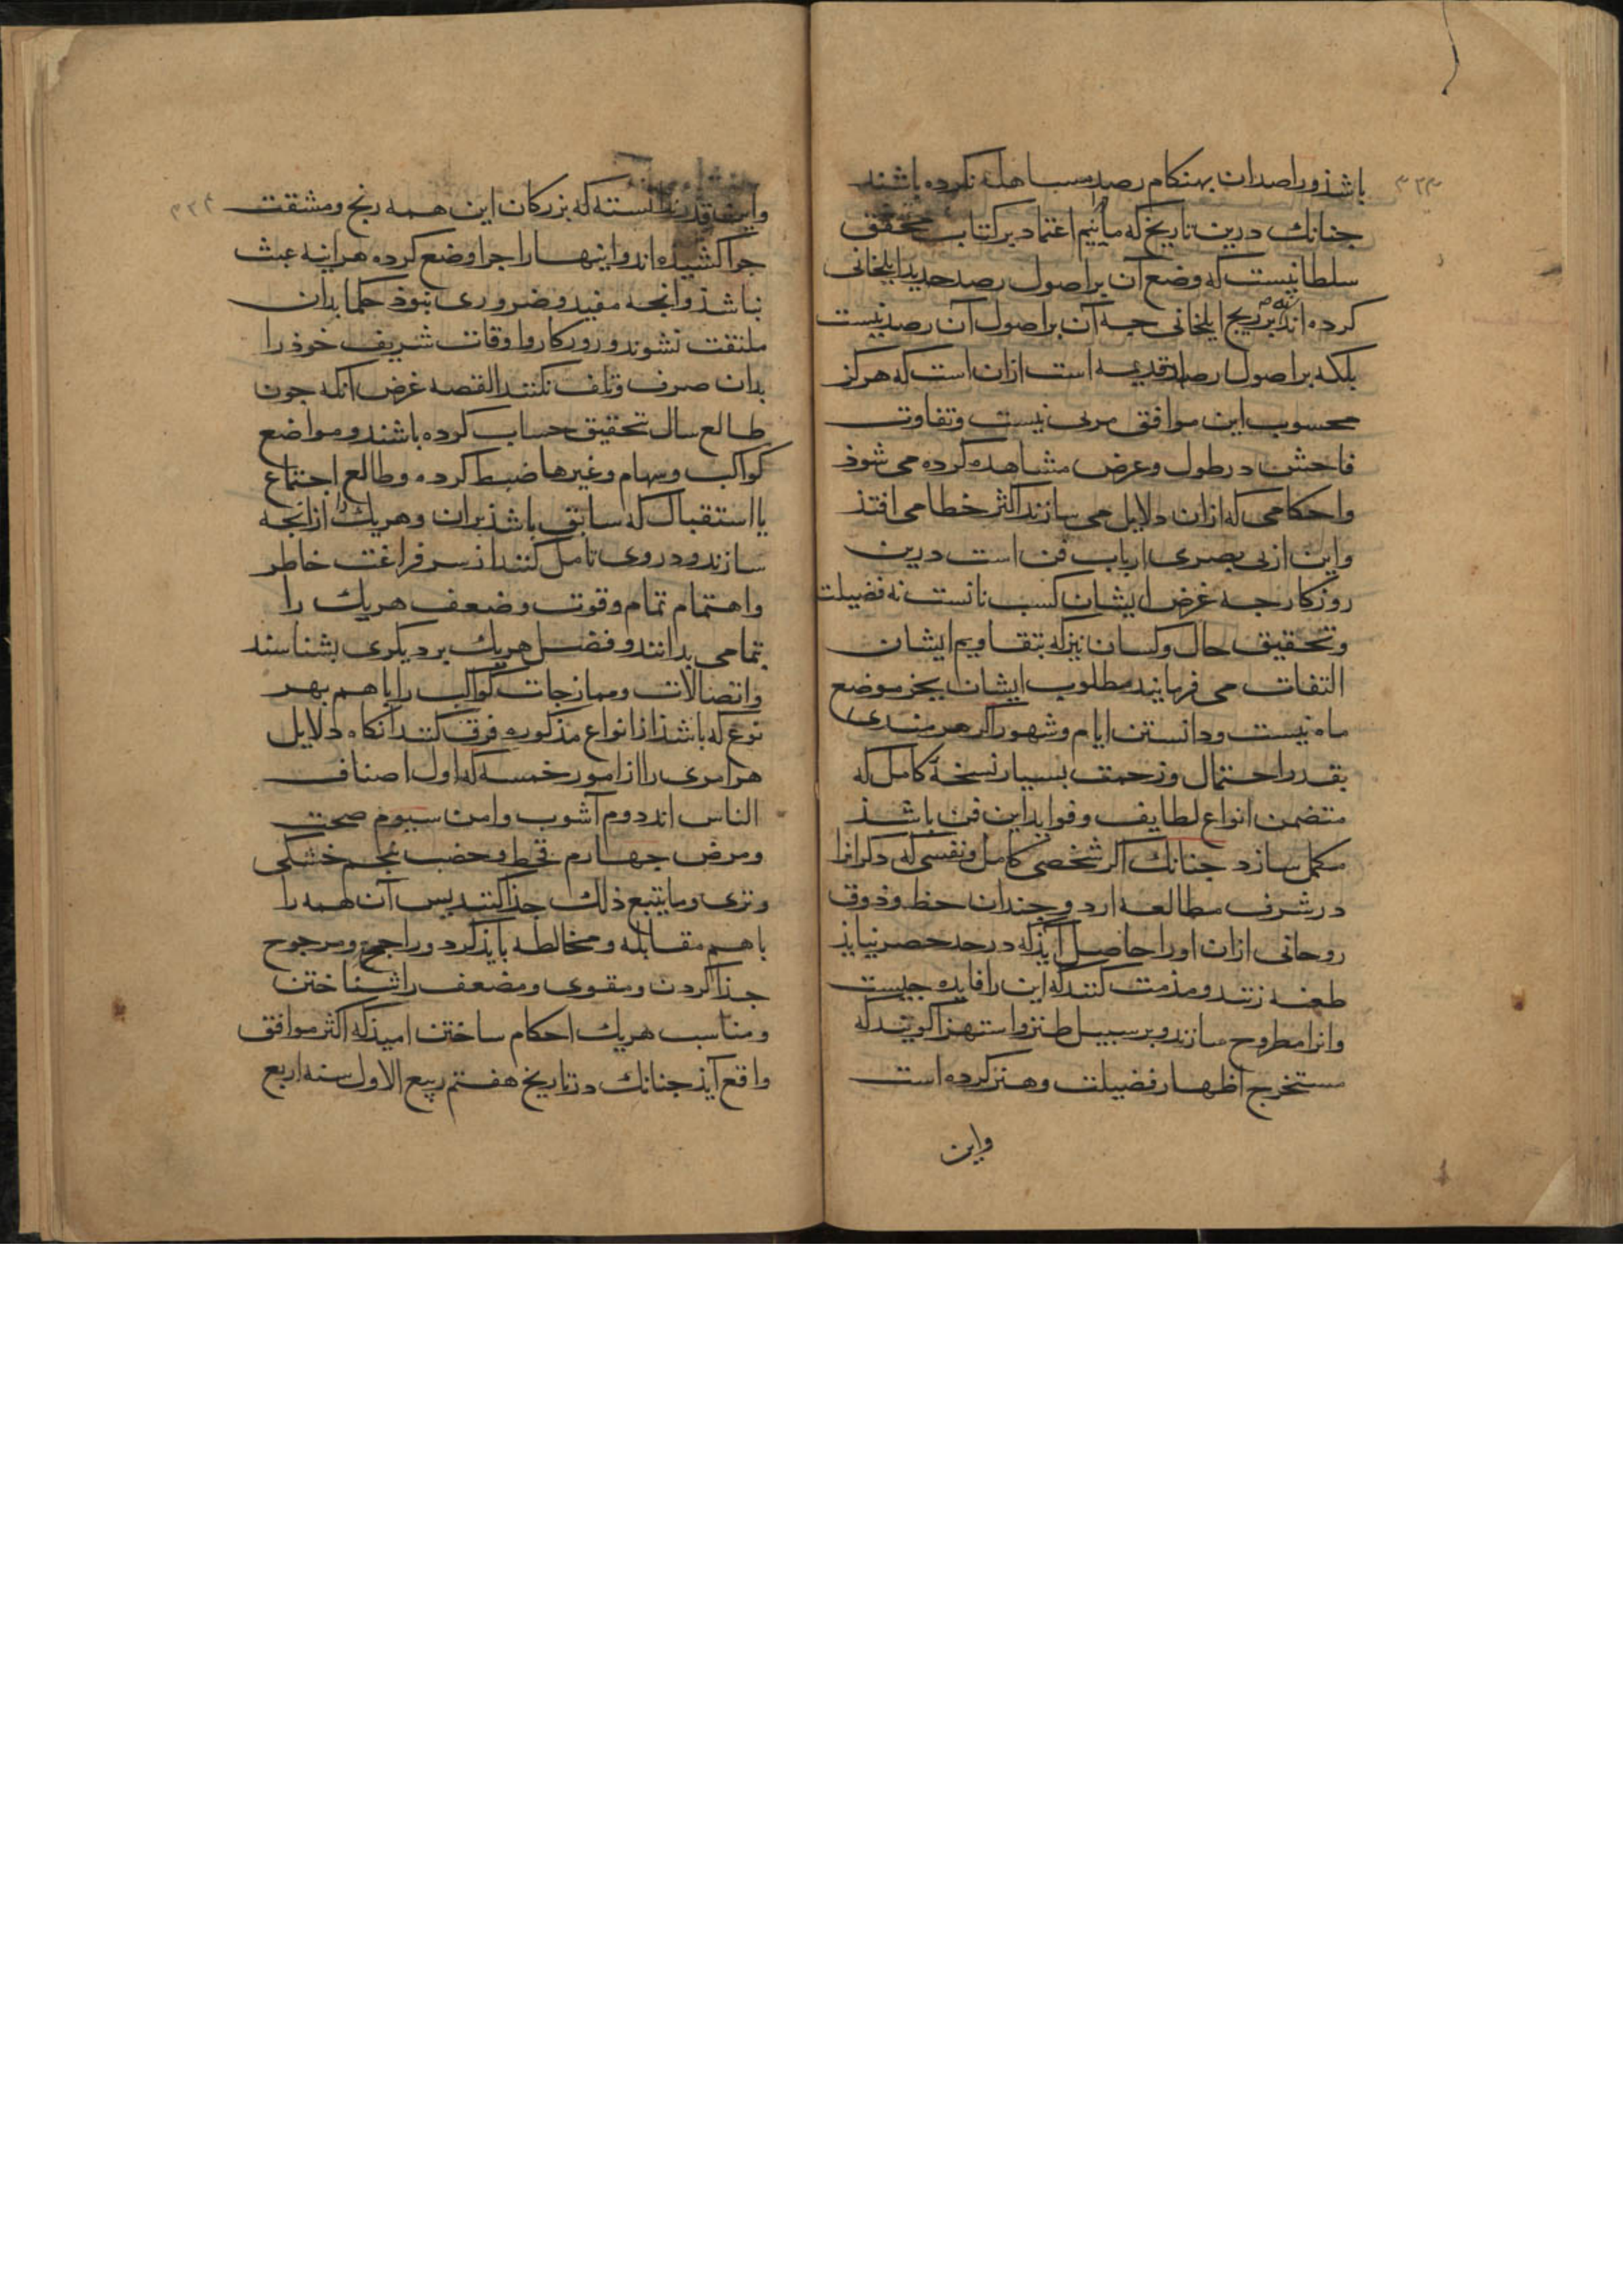 ۳۳۳
باشذ و راصدان بهنکام رصد مساهله نکرده باشند
جنانك درین تاریخ که مائیم اعتماد بر کتاب محقق
سلطانیست که وضع آن بر اصول رصد جدید ایلخانی
کرده اند نه بر زیج ایلخانی جه آن بر اصول آن رصد نیست
بلکه بر اصول ارصاد قدیمه است ازان است که هرکز
محسوب این موافق مرئی نیست و تفاوت
فاحش در طول و عرض مشاهده کرده می شوذ
و احکامی که ازان دلایل می سازند اکثر خطا می افتذ
و این از بی بصری ارباب فن است درین
روزکار جه غرض ایشان کسب نانست نه فضیلت
و تحقیق حال و کسان نیز که بتقاویم ایشان
التفات می فرمایند مطلوب ایشان بجز موضع
ماه نیست و دانستن ایام و شهور اکر هنرمندی
بقدر احتمال و زحمت بسیار نسخهٔ کامل که
متضمن انواع لطایف و فواید این فن باشذ
مکمل سازد جنانك اکر شخصی کامل و نفسی که دکر انرا
در شرف مطالعه ارد و جندان حظ و ذوق
روحانی ازان او را حاصل آیذ که در حد حصر نیایذ
طعنه زنند و مذمت کنند که این را فایده جیست
و انرا مطروح سازند و بر سبیل طنز و استهزا کویند که
مستخرج اظهار فضیلت و هنر کرده است
واین
۳۳۴
و این قدر ندانسته که بزرکان این همه رنج و مشقت
جرا کشیده اند و اینها را جرا وضع کرده هراینه عبث
نباشذ و انجه مفید و ضروری نبوذ حکما بدان
ملتفت نشوند و روزکار و اوقات شریف خوذ را
بدان صرف و تلف نکنند القصه غرض انکه جون
طالع سال تحقیق حساب کرده باشند و مواضع
کواکب و سهام و غیرها ضبط کرده و طالع اجتماع
یا استقبال که سابق باشذ بران و هریك را زایجه
سازند و در وی تامل کنند از سر فراغت خاطر
و اهتمام تمام و قوت و ضعف هریك را
بتمامی بدانند و فضل هریك بر دیکری بشناسند
و اتصالات و ممازجات کواکب را باهم بهر
نوع که باشذ از انواع مذکوره فرق کنند آنکاه دلایل
هر امری را از امور خمسه که اول اصناف
الناس اند دوم آشوب و امن سیوم صحت
و مرض جهارم قحط و خصب بنجم خشکی
و تری و ما یتبع ذلك جذا کنند پس آن همه را
باهم مقابله و مخالطه بایذ کرد و راجح و مرجوح
جذا کردن و مقوی و مضعف را شناختن
و مناسب هریك احکام ساختن امیذ که اکثر موافق
واقع آیذ جنانك در تاریخ هفتم ربیع الاول سنه اربع